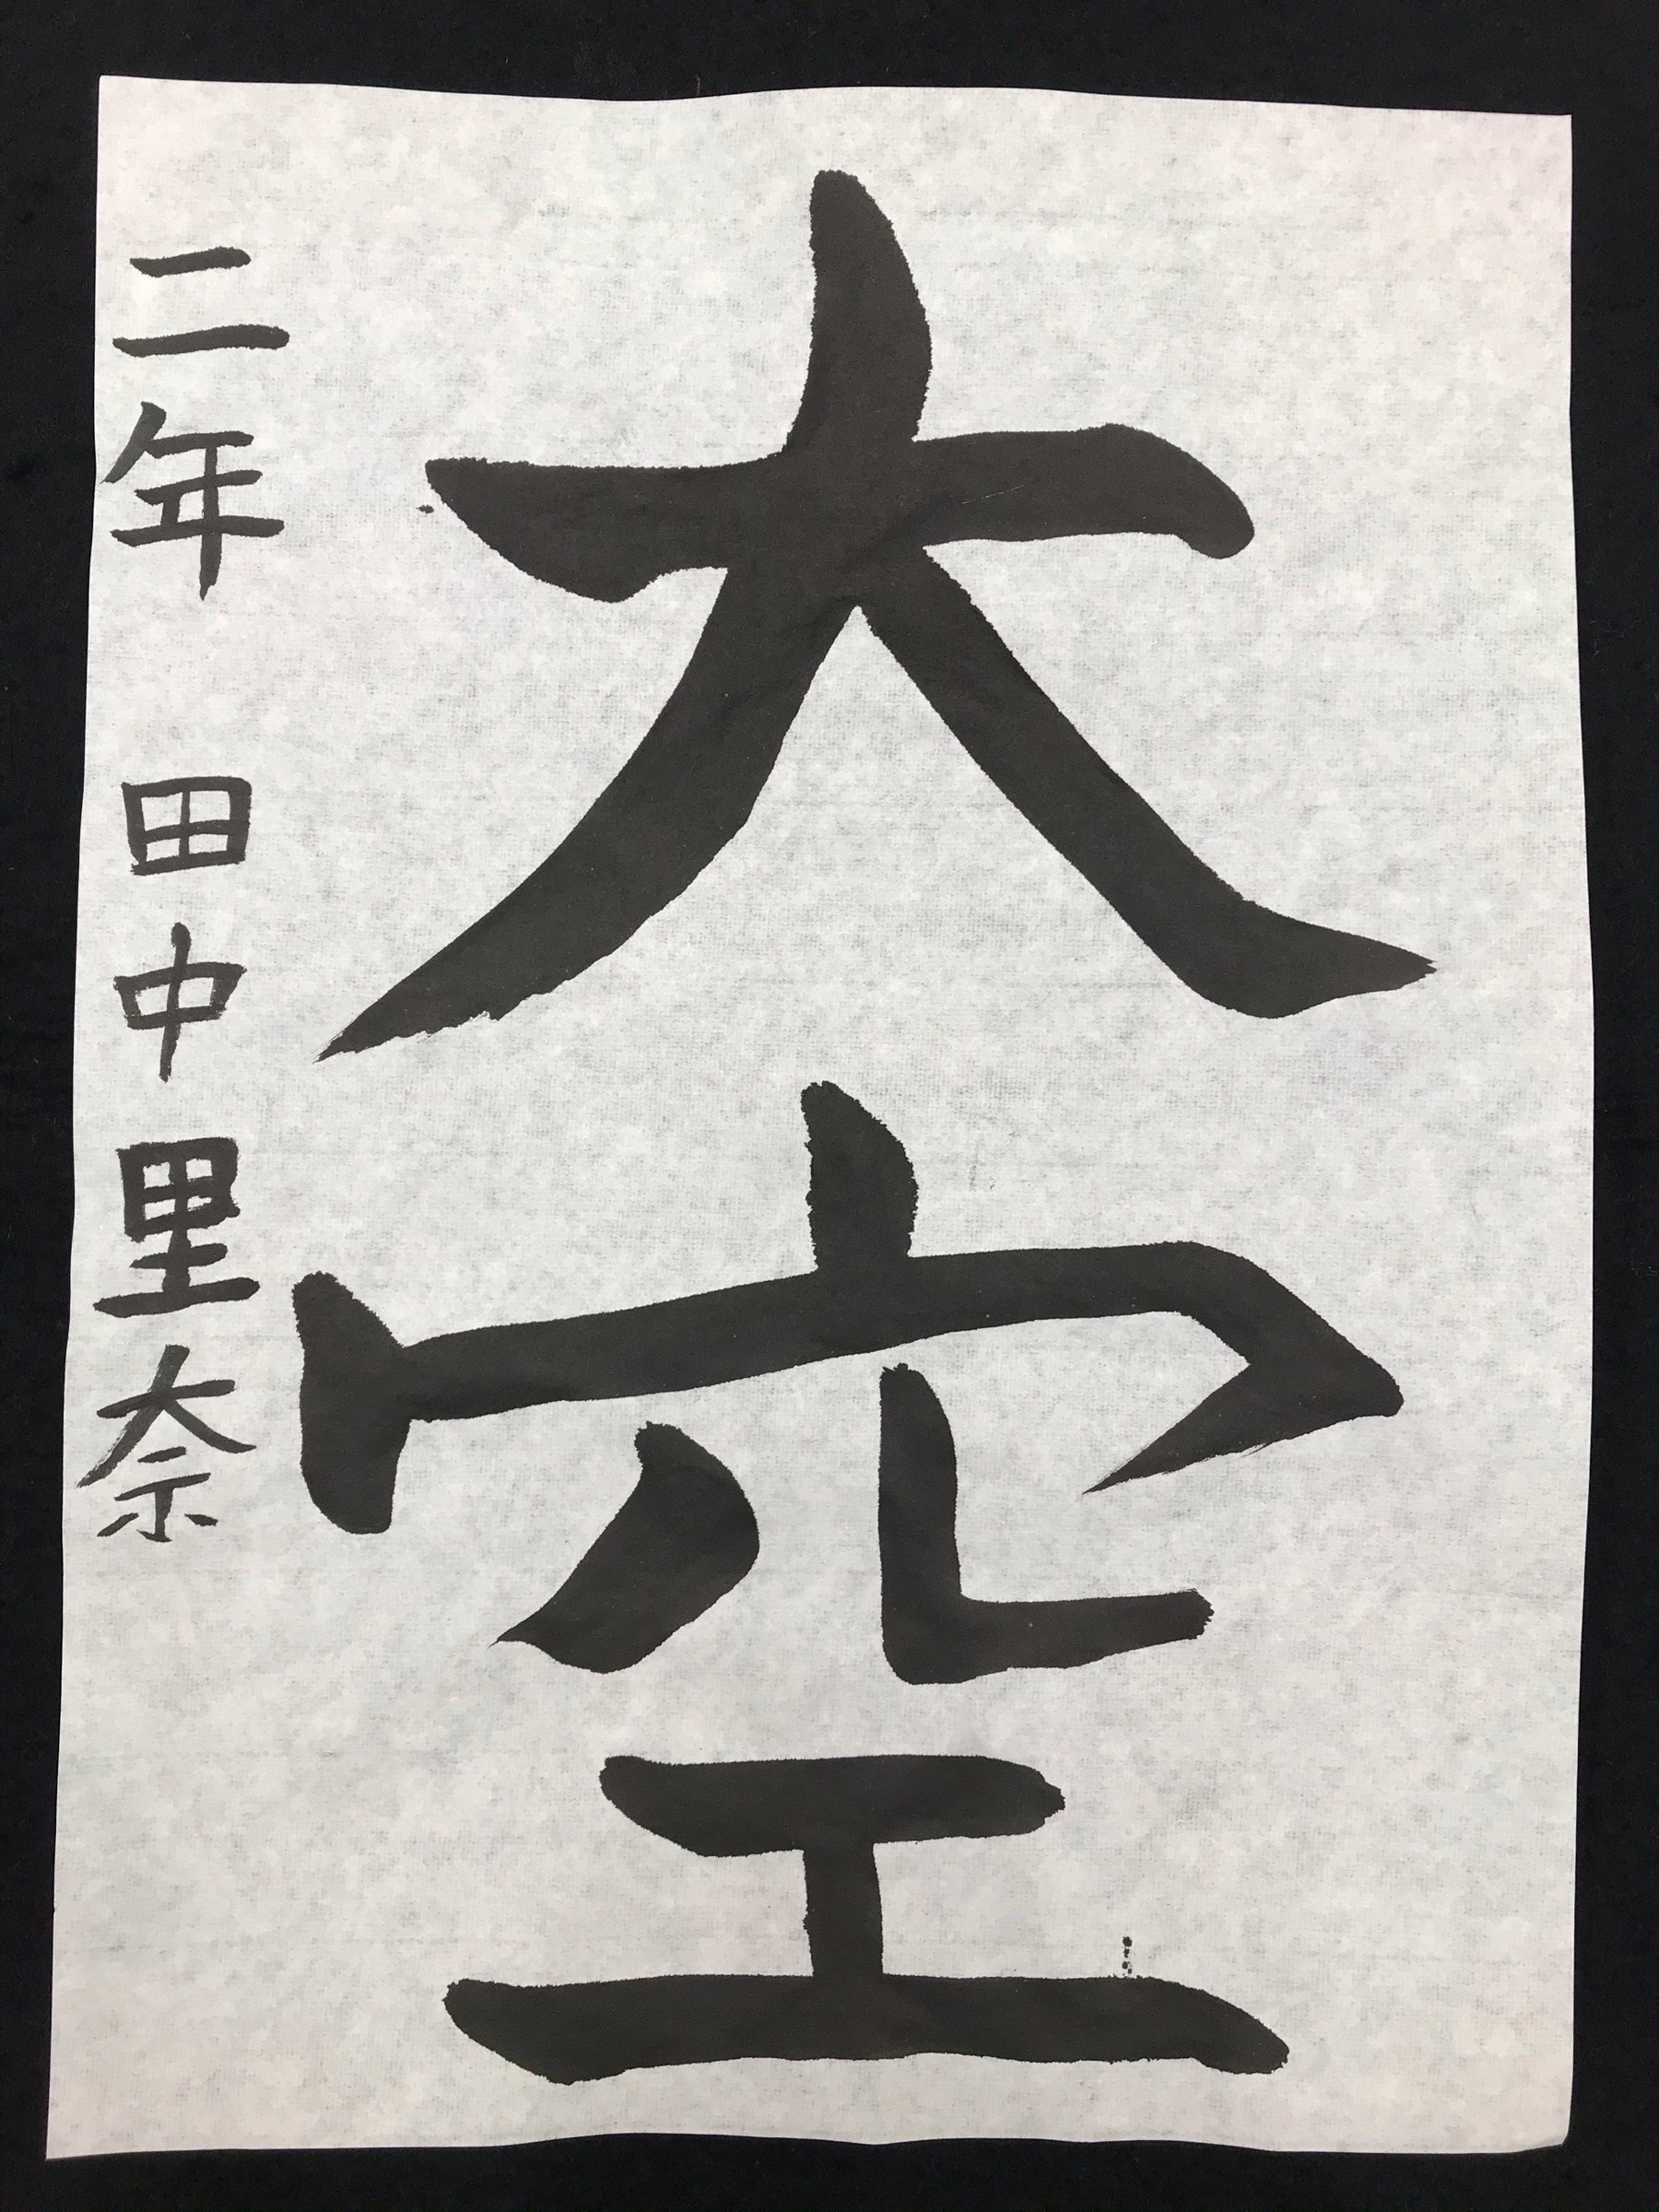 大空
二年 田中里奈